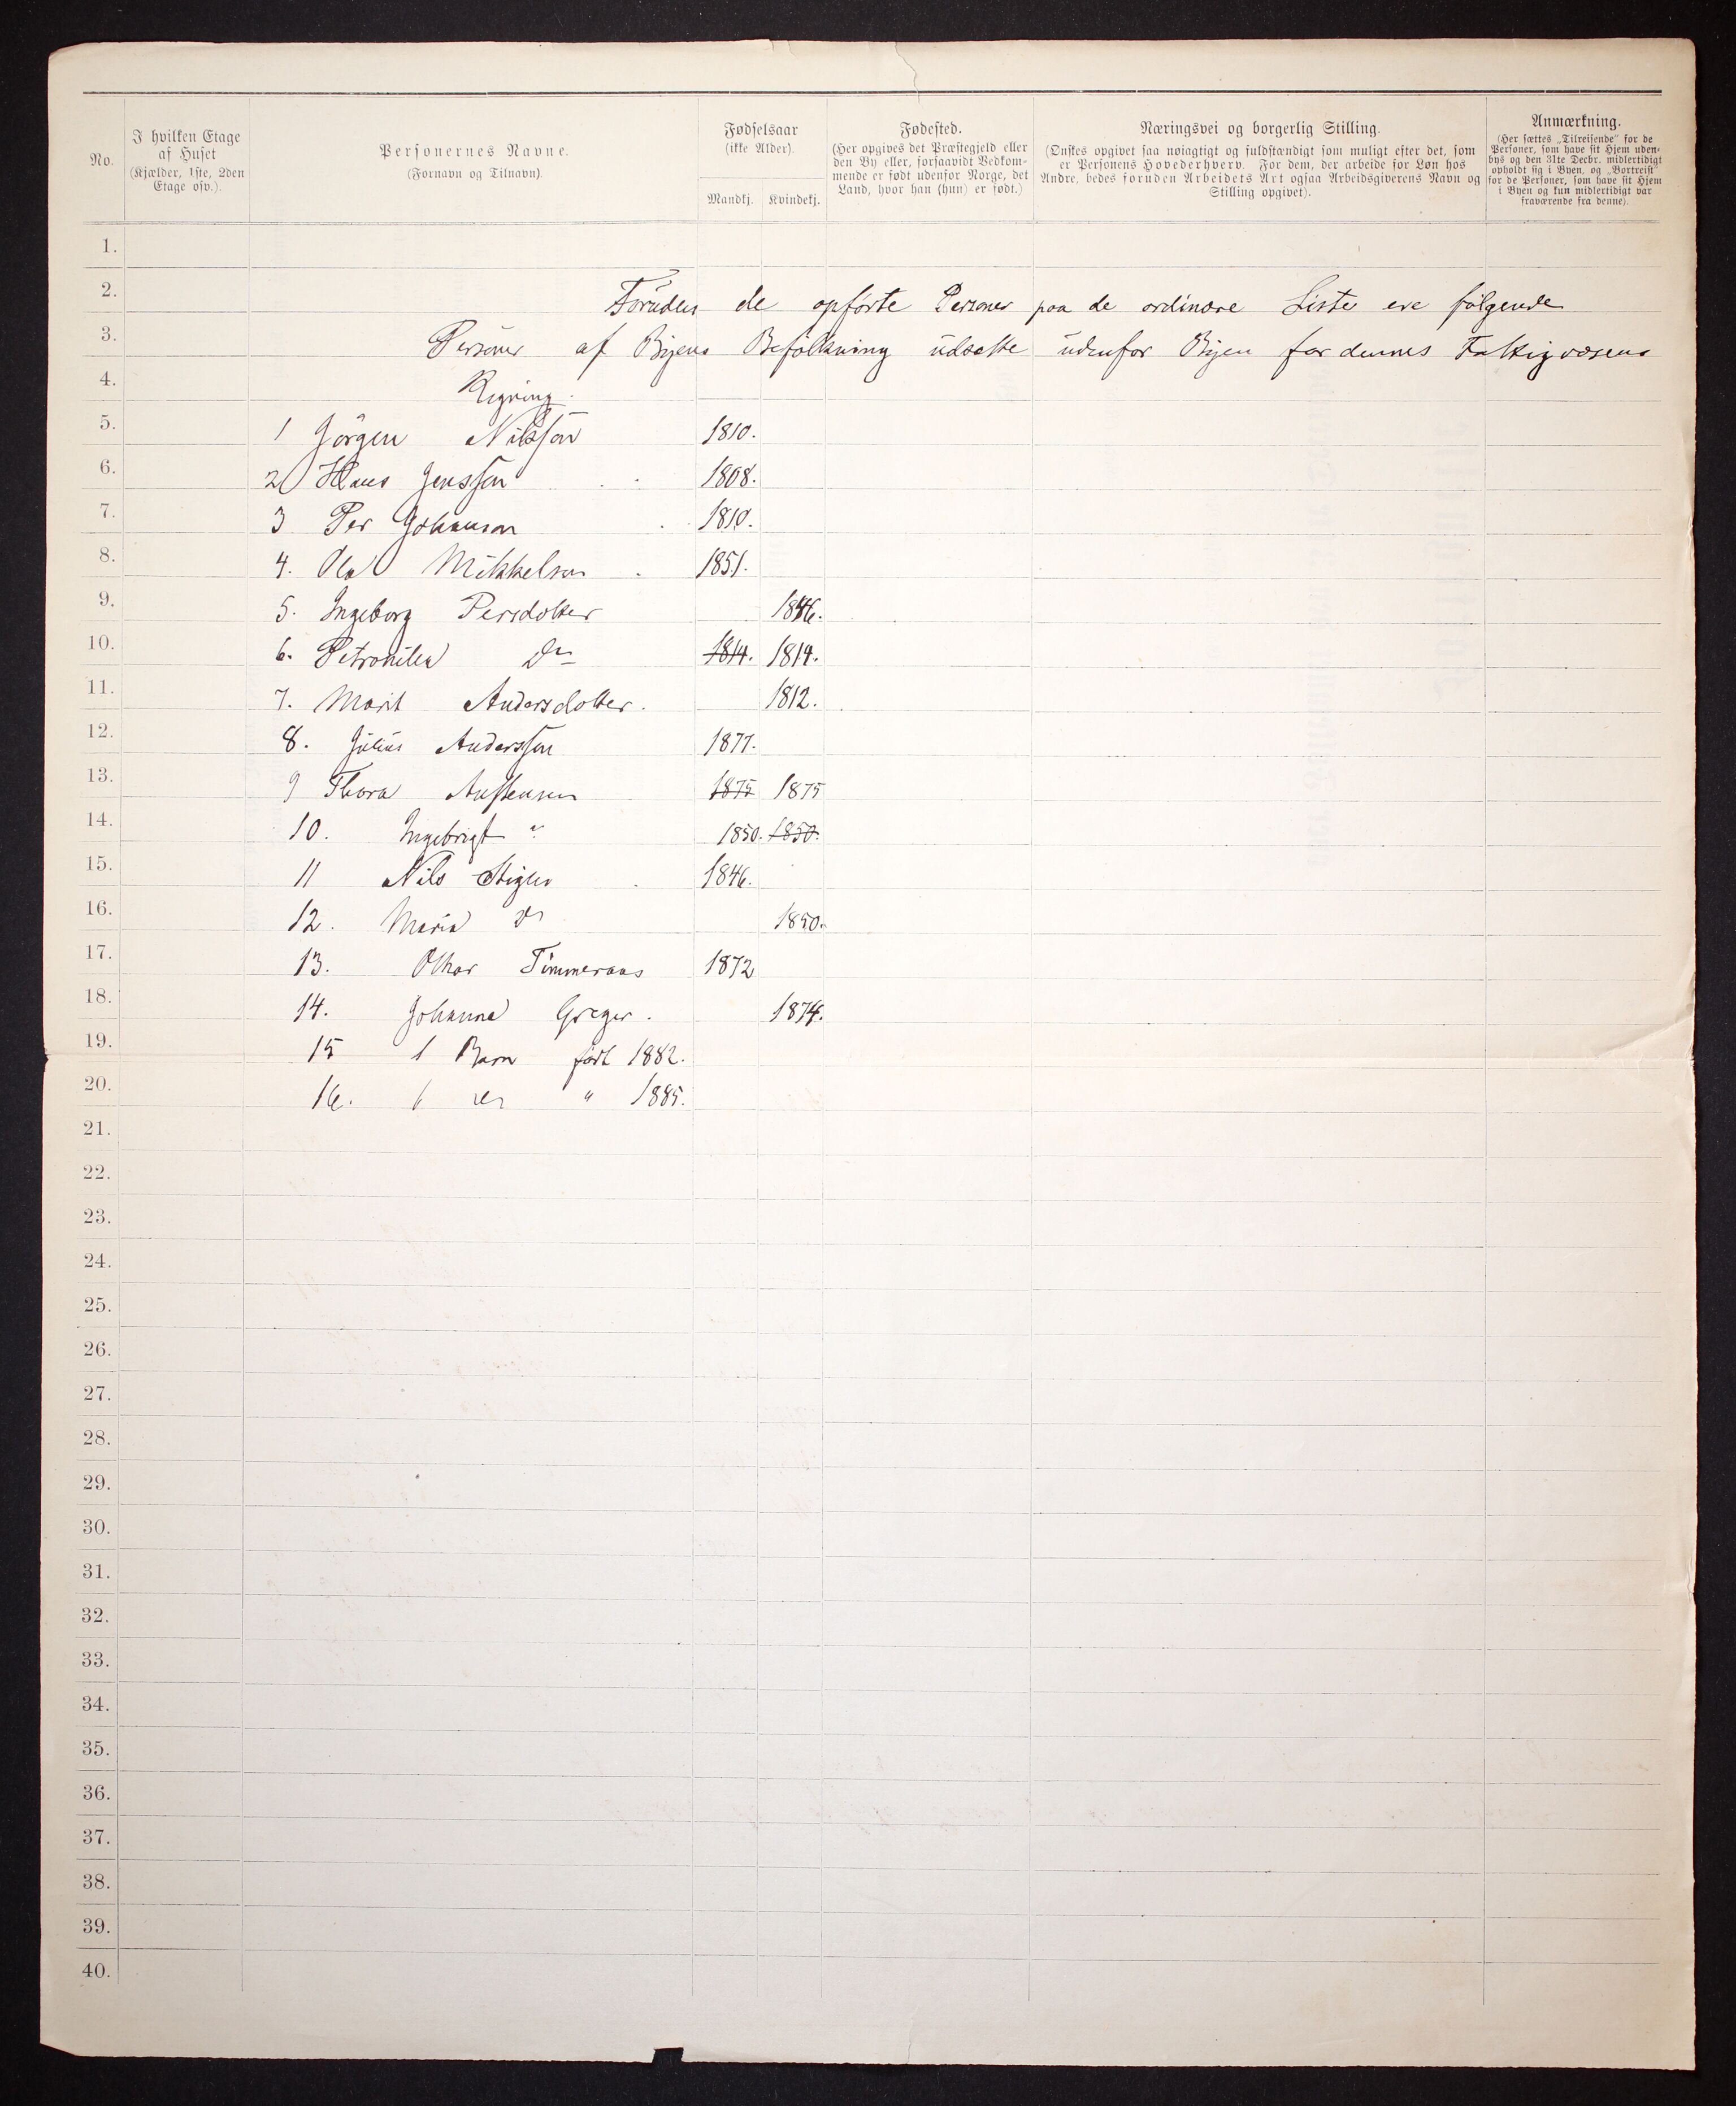 No.
I hvilken Etage
af Huset
(Kjælder, 1ste, 2den
Etage osv.).
Personernes Navne.
(Fornavn og Tilnavn).
Fødselsaar
(ikke Alder).
Mandkj. Kvindekj.
Fødested.
(Her opgives det Præstegjeld eller
den By eller, forsaavidt Vedkom-
mende er født udenfor Norge, det
Land, hvor han (hun) er født.)
Næringsvei og borgerlig Stilling.
(Ønskes opgivet saa nøiagtigt og fuldstændigt som muligt efter det, som
er Personens Hovederhverv. For dem, der arbeide for Løn hos
Andre, bedes foruden Arbeidets Art ogsaa Arbeidsgiverens Navn og
Stilling opgivet).
Anmærkning.
(Her sættes „Tilreisende" for de
Personer, som have sit Hjem uden-
bys og den 31te Decbr. midlertidigt
opholdt sig i Byen, og „Bortreist"
for de Personer, som have sit Hjem
i Byen og kun midlertidigt var
fraværende fra denne).
1.
2. Foruden de opførte Personer paa de ordinære Liste ere følgende
3. Personer af Byens Befolkning udsatte udenfor Byen for dennes Fattigvæsens
4. Regning.
5. 1 Jörgen Nilsson 1810.
6. 2 Hans Jensson 1808.
7. 3 Per Johanson 1810.
8. 4. Ola Mikkelsen 1851.
9. 5. Ingeborg Persdotter 1846.
10. 6. Petronila Do 1814. 1814.
11. 7. Marit Andersdotter. 1812.
12. 8. Julius Andersson 1877.
13. 9 Thora 1875 1875
14. 10. Ingebrigt " 1850. 1850.
15. 11 Nils 1846.
16. 12. Maria Do 1850.
17. 13. Othar Timmeraas 1872
18. 14. Johanna Greger. 1874.
19. 15 1 Barn født 1882.
20. 16. 1 do " 1885.
21.
22.
23.
24.
25.
26.
27.
28.
29.
30.
31.
32.
33.
34.
35.
36.
37.
38.
39.
40.